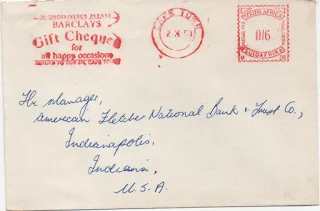 IF UNDELIVERED PLEASE
BARCLAYS
Gift Cheque
for
all happy occasions
CAPE TOWN
2 X 59
SOUTH AFRICA
0/6
SUIDAFRIKA
The Manager,
American Fletcher National Bank & Trust Co.,
Indianapolis,
Indiana,
U.S.A.